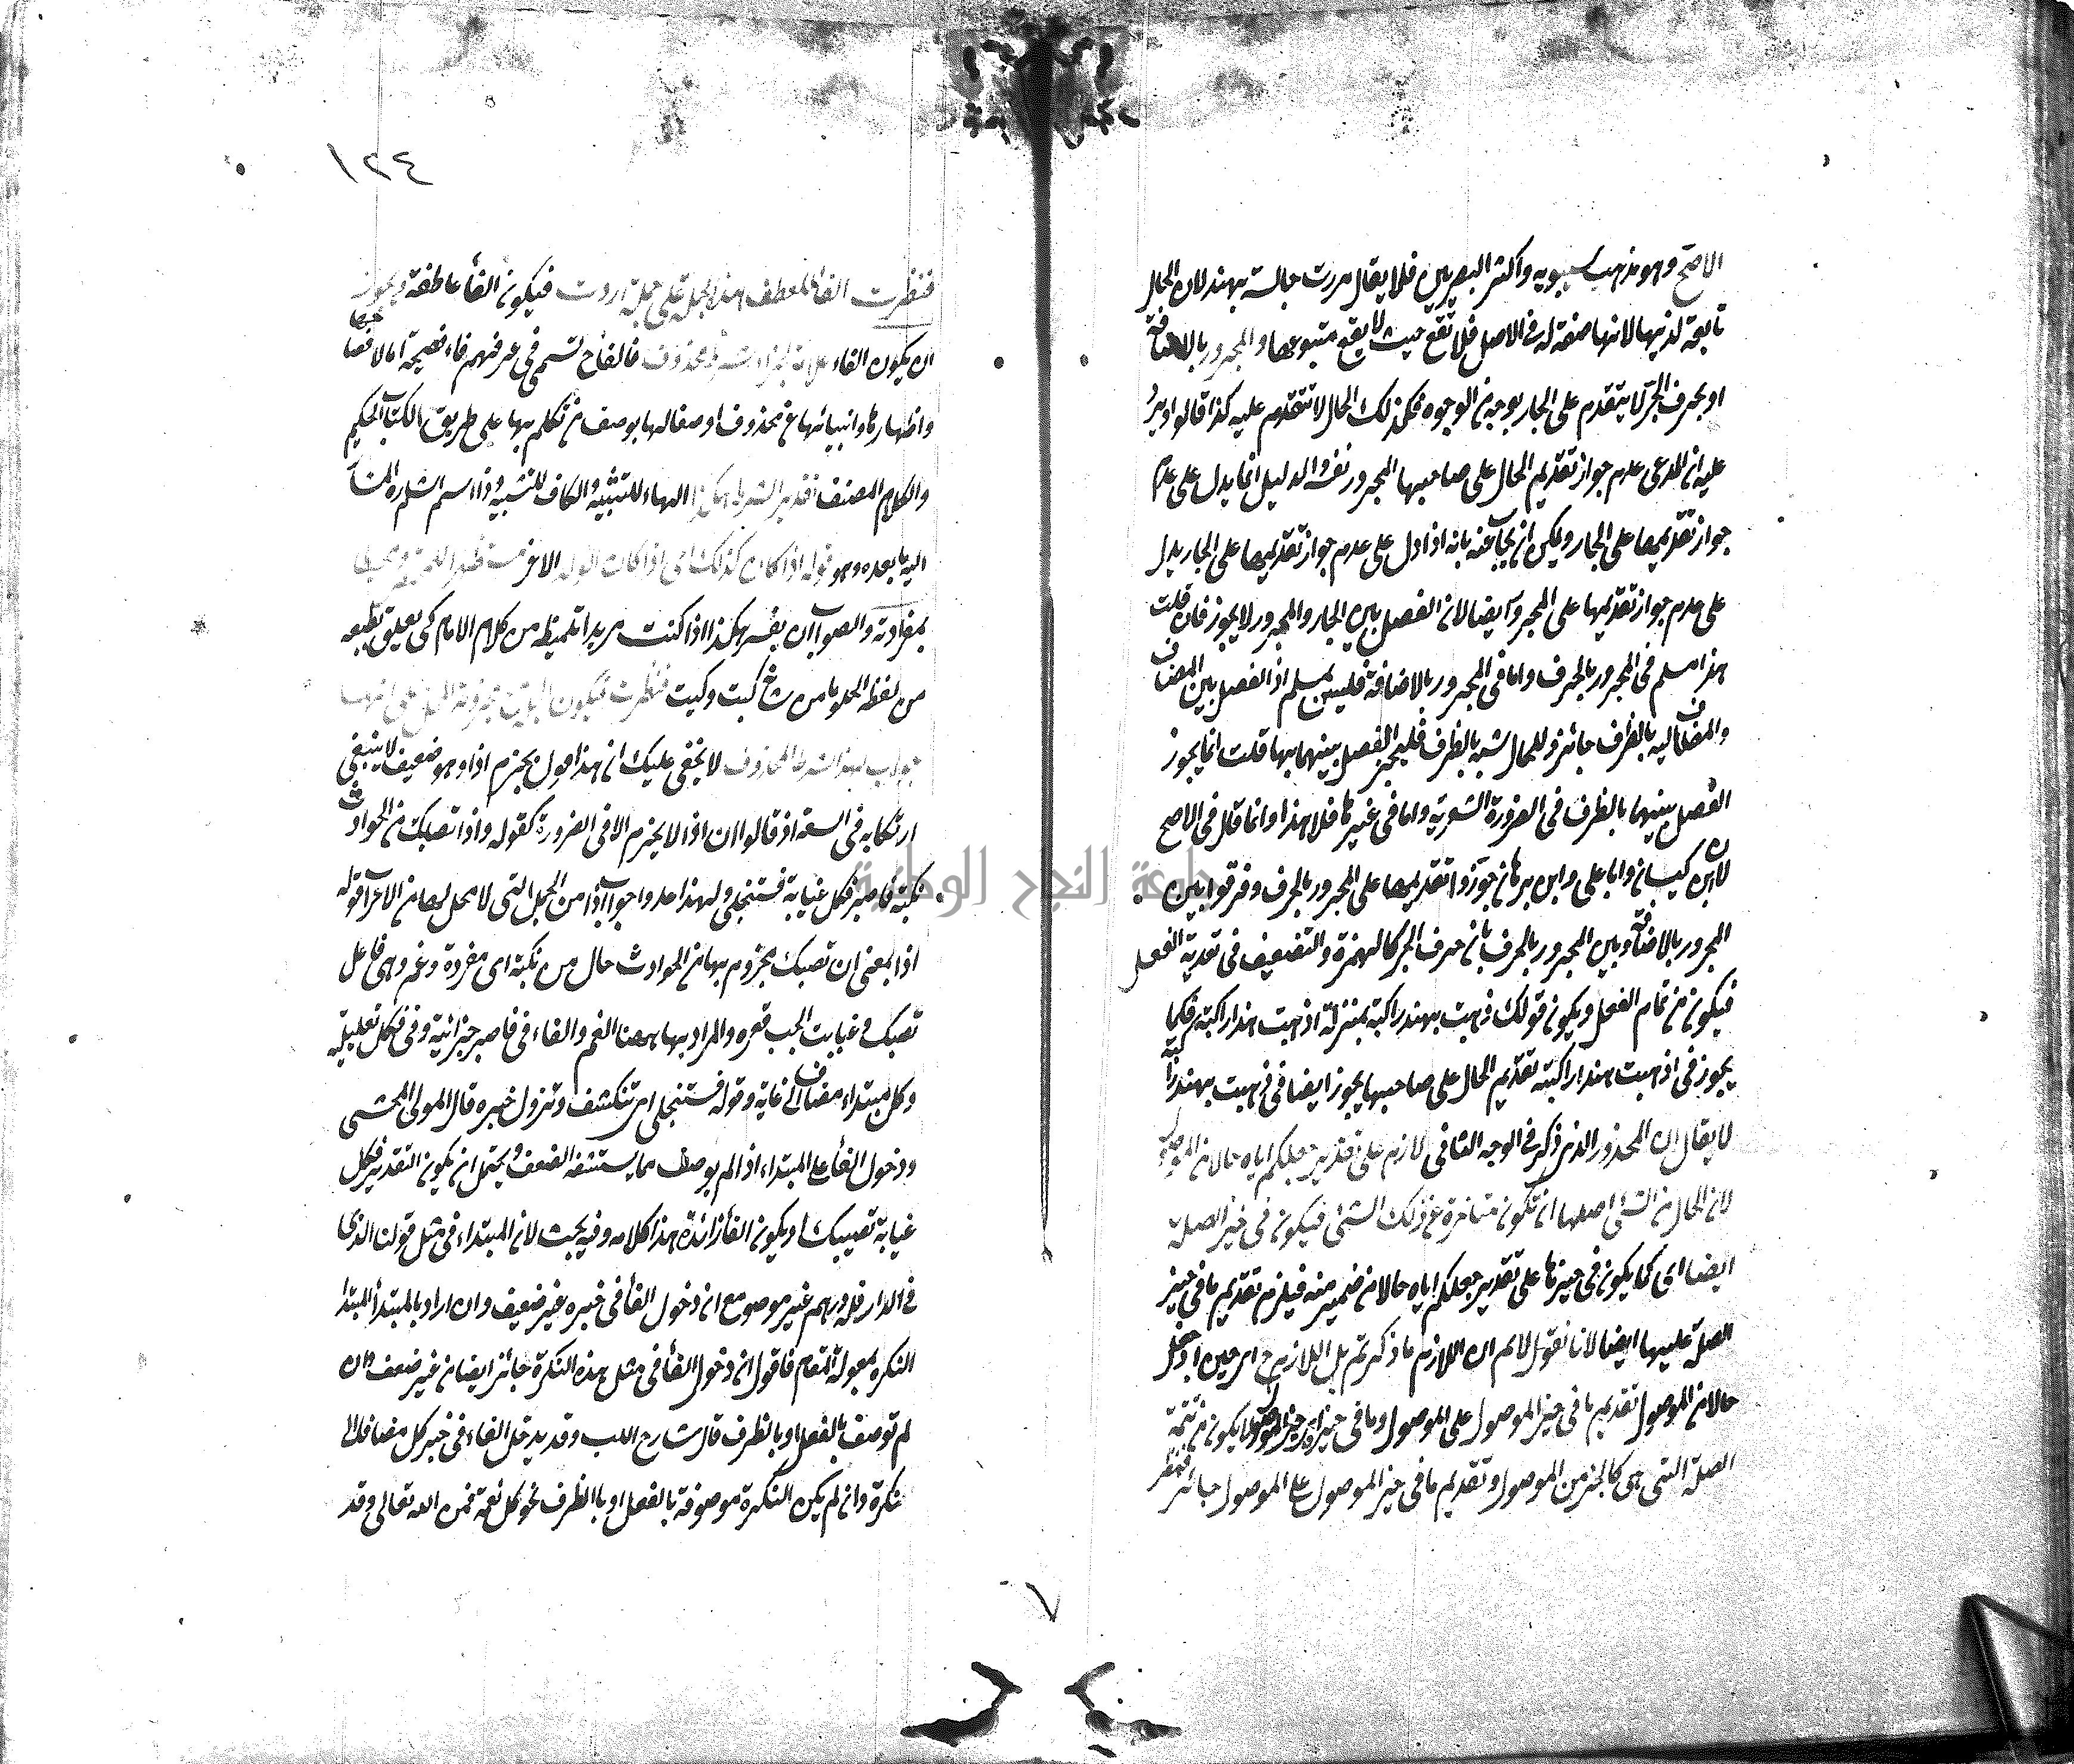 الاصح وهو مذهب سيبويه واكثر البصريين فلا يقال مررت جالسة بهند لان الحال
تابعة لذيها لانها صفة له في الاصل فلا تقع حيث لا يقع متبوعها والمجرور بالاضافة
او بحرف الجر لا يتقدم على الجار بوجه من الوجوه فكذلك الحال لا تتقدم عليه كذا قالوا ويرد
عليه ان المدعى عدم جواز تقديم الحال على صاحبها المجرور نفسه والدليل انما يدل على عدم
جواز تقديمها على الجار ويمكن ان يجاب عنه بانه اذا دل على عدم جواز تقديمها على الجار يدل
على عدم جواز تقديمها على المجرور ايضا لان الفصل بين الجار والمجرور لا يجوز فان قلت
هذا مسلم في المجرور بالحرف واما في المجرور بالاضافة فليس بمسلم اذ الفصل بين المضاف
والمضاف اليه بالظرف جائز وللحال شبه بالظرف فليجز الفصل بينهما بها قلت انما يجوز
الفصل بينهما بالظرف في الضرورة الشعرية واما في غيرها فلا هذا وانما قال في الاصح
لان ابن كيسان وابا علي وابن برهان جوزوا تقديمها على المجرور بالحرف وفرقوا بين
المجرور بالاضافة وبين المجرور بالحرف بان حرف الجر كالهمزة والتضعيف في تعدية الفعل
فيكون من تمام الفعل ويكون قولك ذهبت بهند راكبة بمنزلة اذهبت هندا راكبة فكما
يجوز في اذهبت هندا راكبة تقديم الحال على صاحبها يجوز ايضا في ذهبت بهند راكبة
لا يقال ان المحذور الذي ذكر في الوجه الثاني لازم على تقدير جعلكم اياه حالا من الموصول
لان الحال من الشئ اصلها ان تكون متاخرة عن ذلك الشئ فيكون في حيز الصلة
ايضا اي كما يكون في حيزها على تقدير جعلكم اياه حالا من ضمير منه فيلزم تقديم ما في حيز
الصلة عليها ايضا لانا نقول لا نم ان اللازم ما ذكرتم بل اللازم ح اي حين اذ جعل
حالا من الموصول تقديم ما في حيز الموصول على الموصول وما في حيز الموصول لا يكون من تتمة
الصلة التي هي كالجزء من الموصول وتقديم ما في حيز الموصول على الموصول جائز فنظر
١٢٤
فنظرت الفاء للعطف هذه الجملة على جملة اردت فيكون الفاء عاطفة ويجوز
ان يكون الفاء علامة لجزاء شرط محذوف فالفاء ح تسمى في عرفهم فاء فصيحة اما لافصاحها
واظهارها وانبيائها عن محذوف او صفا لها بوصف من تكلم بها على طريق الكتاب الحكيم
والكلام المصنف تقدير الشرط هكذا الهاء للتنبيه والكاف للتشبيه وذا اسم اشارة المشار
اليه ما بعده وهو قوله اذا كان كذلك اي اذا كان الولد الاعز
والصواب ان يفسر هكذا اذا كنت مريدا تلميظه من كلام الامام كي يعلق بطبعه
من لفظه الحلو ما من شانه كيت وكيت فنظرت فيكون
جواب لهذا الشرط المحذوف لا يخفى عليك ان هذا قول بجزم اذا وهو ضعيف لا ينبغي
ارتكابه في السعة اذ قالوا ان اذا لا يجزم الا في الضرورة كقوله واذا تصبك من الحوادث
نكبة فاصبر فكل غيابة فستنجلي ولهذا عدوا جواب اذا من الجمل التي لا محل لها من الاعراب قوله
اذا بمعنى ان تصبك مجزوم بها من الحوادث حال من نكبة اي مفردة وغم وهي فاعل
تصبك وغيابت الجب قعره والمراد بها ههنا الغم والفاء في فاصبر جزائية وفي فكل تعليلية
وكل مبتداء مضاف الى غاية وقوله فستنجلي اي تنكشف وتزول خبره قال المولى المحشي
ودخول الفاء على المبتداء اذا لم يوصف مما يستشفه الضعف ويحتمل ان يكون التقدير فكل
غيابة تصيبك او يكون الفاء زائدة هذا كلامه وفيه بحث لان المبتداء في مثل قولنا الذي
في الدار فله درهم غير موصوف مع ان دخول الفاء في خبره غير ضعيف وان اراد بالمبتدأ المبتدا
النكرة بمعونة المقام فاقول ان دخول الفاء في مثل هذه النكرة جائز ايضا من غير ضعف وان
لم توصف بالفعل او بالظرف قال شارح اللب وقد يدخل الفاء في خبر كل مضافا الى
نكرة وان لم يكن النكرة موصوفة بالفعل او بالظرف نحو كل نعمة فمن الله تعالى وقد
جامعة النجاح الوطنية